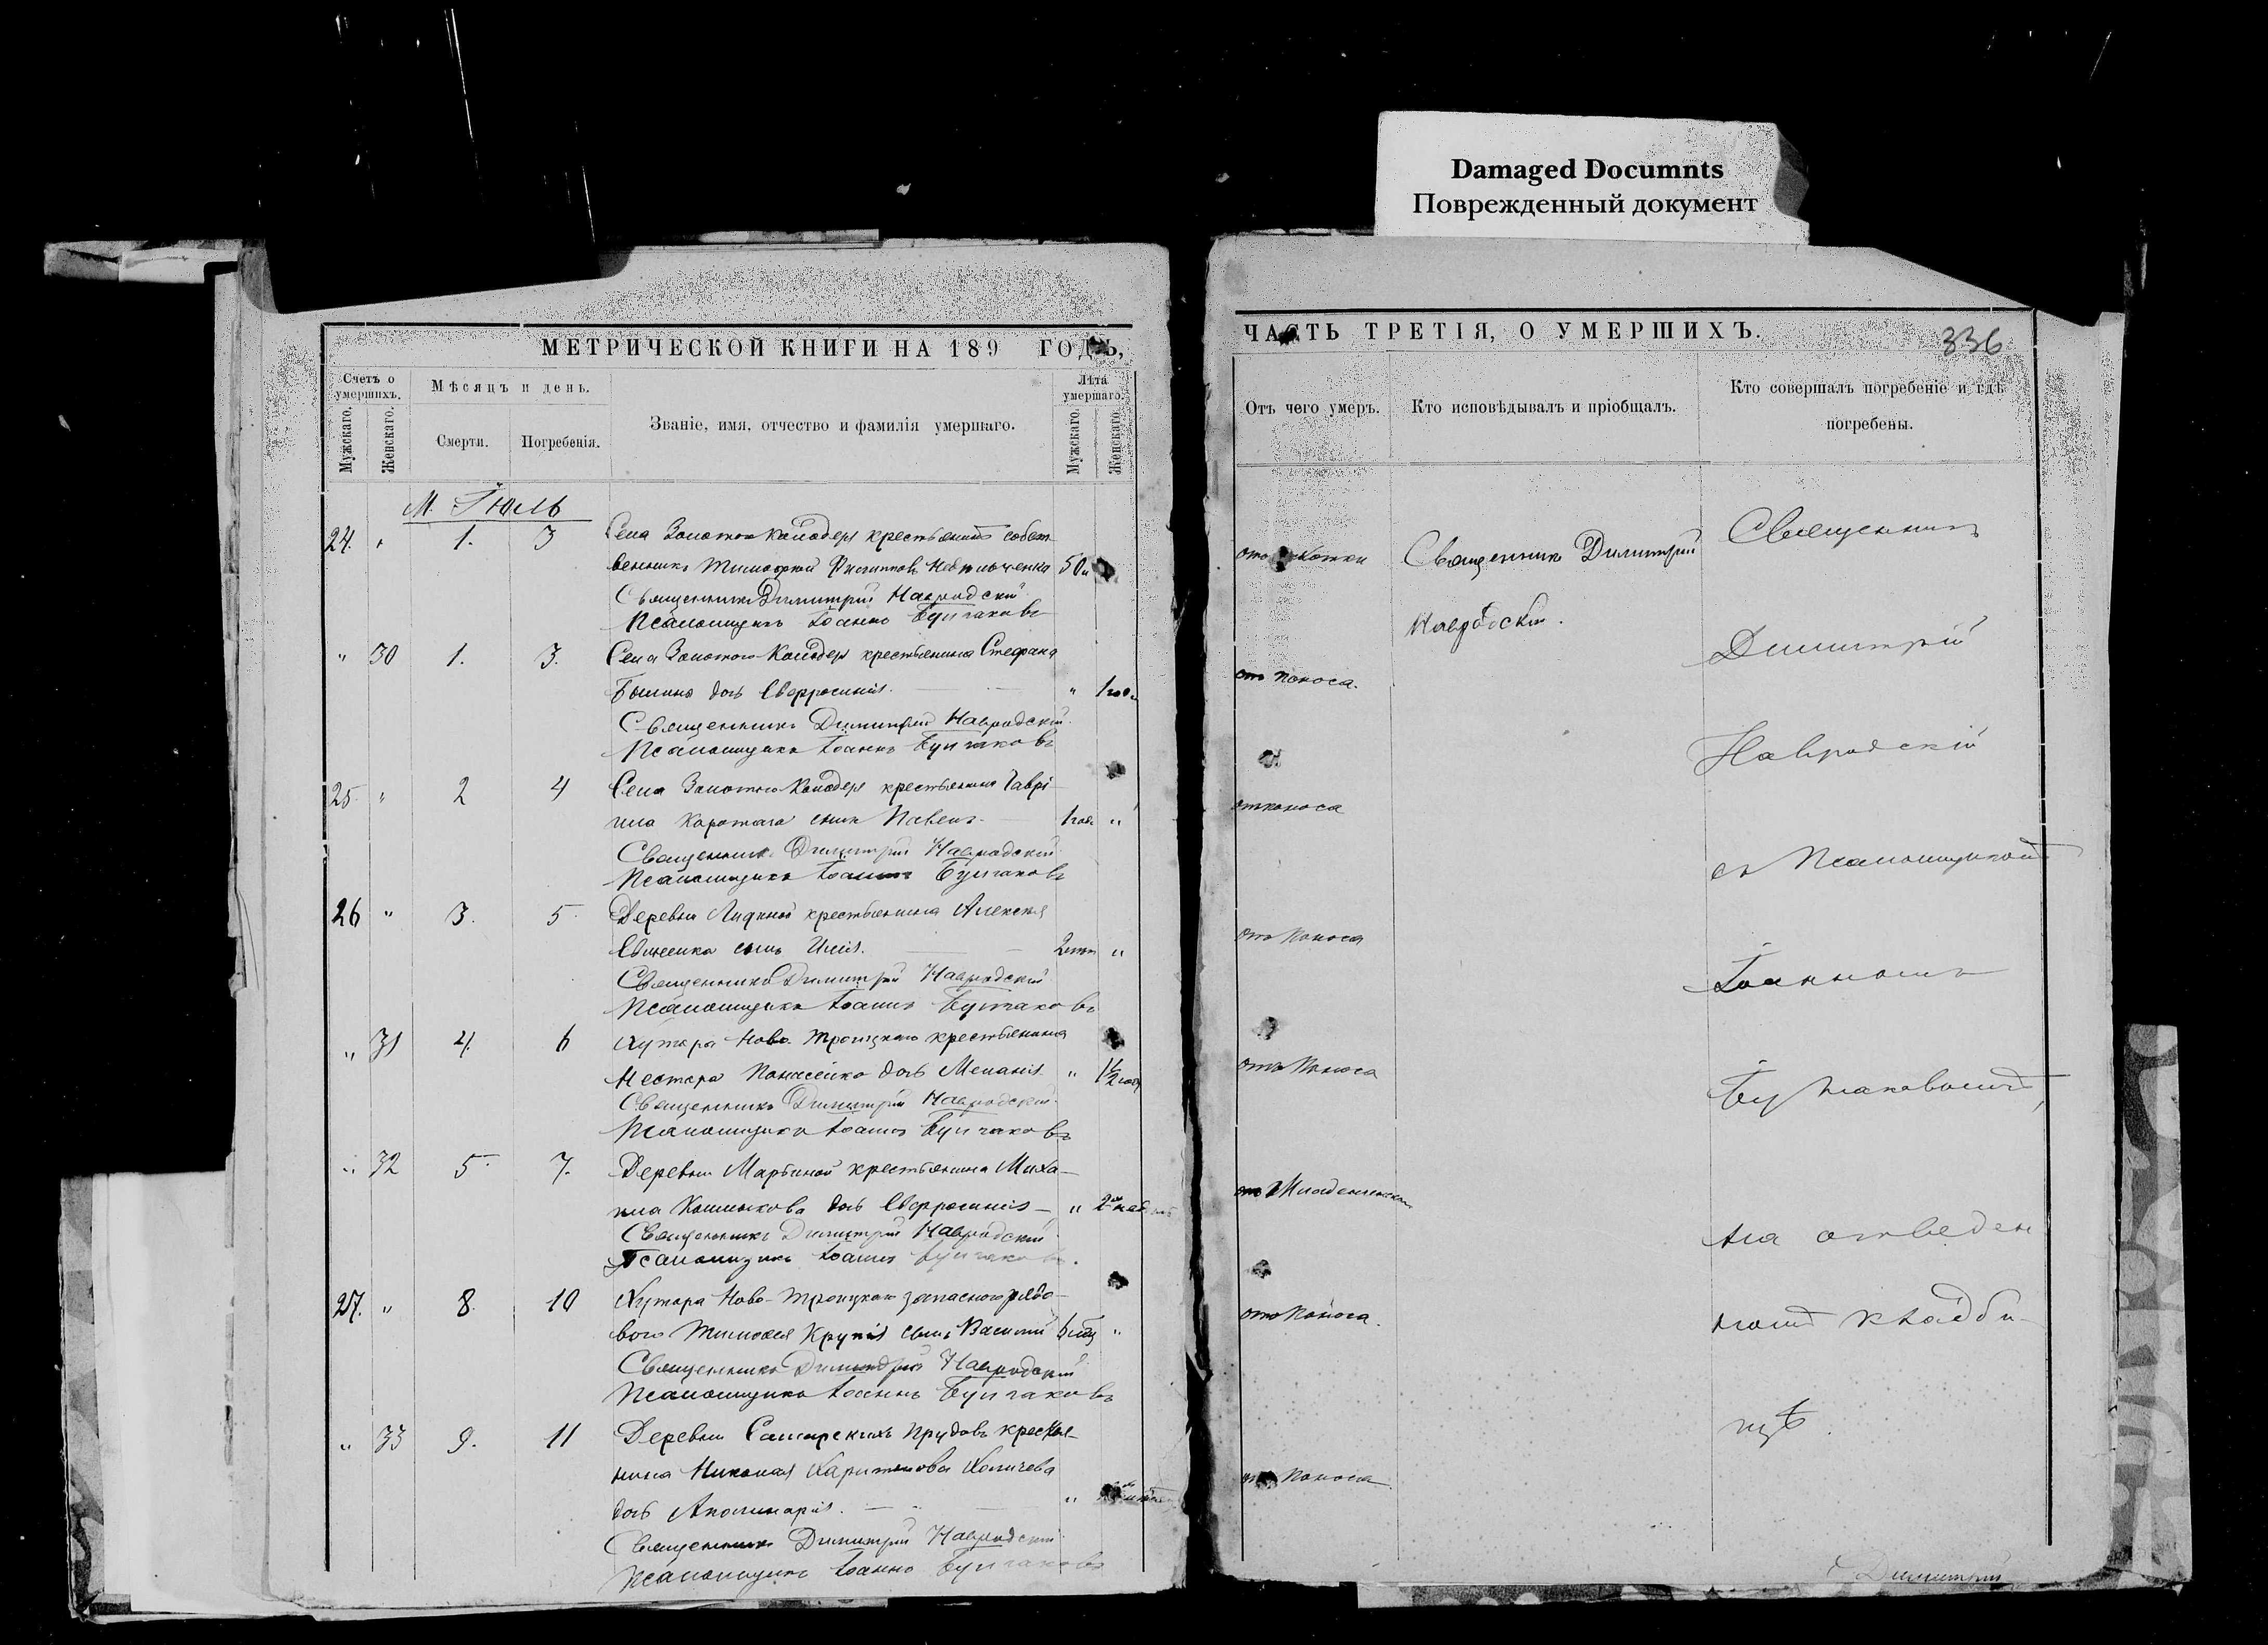 Damaged Documnts
Поврежденный документ
МЕТРИЧЕСКОЙ КНИГИ НА 189 ГОДЪ,
Счетъ о умершихъ.
Мужскаго.
Женскаго.
Мѣсяцъ и день.
Смерти.
Погребенія.
Званіе, имя, отчество и фамилія умершаго.
Лѣта умершаго.
Мужскаго.
Женскаго.
М. Іюль
24. " 1. 3 Села Золотой Колодезь крестьянинъ собст-
венникъ Тимофей Филиппов 50
Священникъ Димитрій Навродскій
Псаломщикъ Іоаннъ Булгаковъ
" 30 1. 3. Села Золотого Колодезя крестьянина Стефана
дочь Евфросинія. " 1 года
Священникъ Димитрій Навродскій
Псаломщикъ Іоаннъ Булгаковъ
25. " 2 4 Села Золотого Колодезя крестьянина Гаврі-
ила Короткаго сынъ Павелъ. 1 года "
Священникъ Димитрій Навродскій
Псаломщикъ Іоаннъ Булгаковъ
26 " 3. 5. Деревни крестьянина Алексея
сынъ Илія. "
Священникъ Димитрій Навродскій
Псаломщикъ Іоаннъ Булгаковъ
" 31 4. 6 Хутора Ново-Троицкаго крестьянина
Нестора дочь Меланія " 1½ года
Священникъ Димитрій Навродскій
Псаломщикъ Іоаннъ Булгаковъ
" 32 5. 7. Деревни Марьиной крестьянина Миха-
ила дочь Евфросинія " 2
Священникъ Димитрій Навродскій
Псаломщикъ Іоаннъ Булгаковъ.
27. " 8. 10 Хутора Ново-Троицкаго запасного рядо-
вого сынъ Василій "
Священникъ Димитрій Навродскій
Псаломщикъ Іоаннъ Булгаковъ
" 33 9. 11 Деревни Самарскихъ Прудовъ крестья-
нина Николая Харитонова
дочь Аполинарія. "
Священникъ Димитрій Навродскій
Псаломщикъ Іоаннъ Булгаковъ
ЧАСТЬ ТРЕТІЯ, О УМЕРШИХЪ.
336
Отъ чего умеръ.
Кто исповѣдывалъ и пріобщалъ.
Кто совершалъ погребеніе и гдѣ погребены.
отъ
отъ поноса.
отъ поноса
отъ поноса
отъ поноса
отъ
отъ поноса.
отъ поноса
Священникъ Димитрій
Навродскій.
Священникъ
Димитрій
Навродскій
съ Псаломщикомъ
Іоанномъ
Булгаковымъ,
на отведен-
номъ кладби-
щѣ.
Димитрій